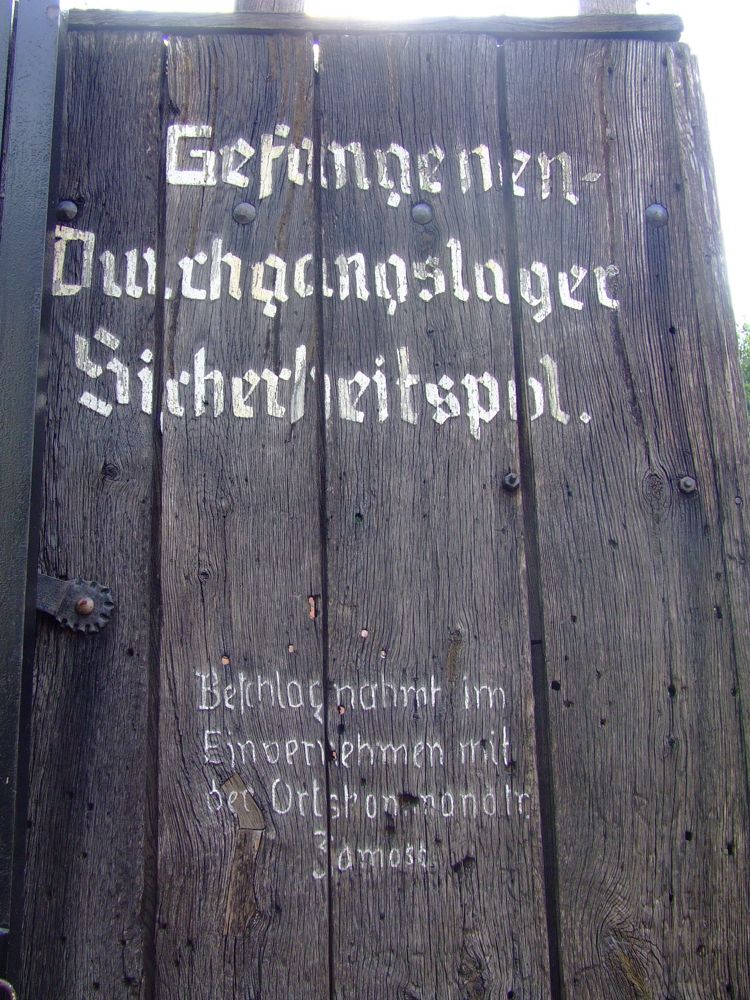 Gefangenen-
Durchgangslager
Sicherheitspol.
Beschlagnahmt im
Einvernehmen mit
der Ortskommandtr.
Zamosc.